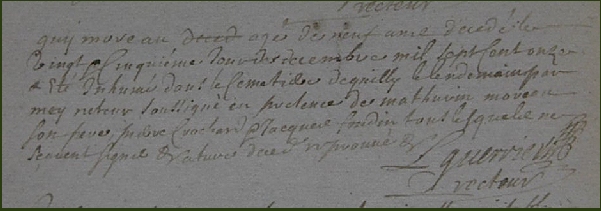 recteur
guy moreau decedé agé de neuf ans decedé le
vingt cinquiéme jour de decembre mil sept cent onze
a été Inhumé dans le Cemetiére de quilly le lendemain par
moy recteur soussigné en presence de mathurin moreau
son pere, pierre Crochard Jacques tous lesquels ne
scavent signer de ce
L guerrie
recteur